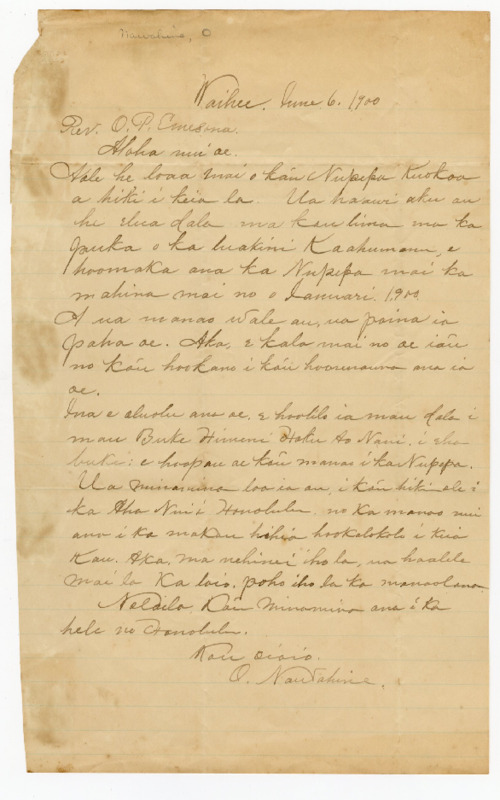 Nawahine, O
Waihee. June 6. 1900
Rev. O. P. Emesona.
Aloha nui oe.
Aole he loaa mai o káu Nupepa Kuokoa
a hiki i keia la. Ua haawi aku au
he elua dala ma kau lima ma ka
puka o ka luakini Kaahumanu, e
hoomaka ana ka Nupepa mai ka
mahina mai no o Ianuari. 1900.
A ua manao wale au, ua poina ia
paha oe. Aka, e kala mai no oe iáu
no káu hookano i káu hoounauna ana ia
oe.
Ina e oluolu ana oe. e hoolilo ia mau dala i
mau Buke Himeni Hoku Ao Nani. i eha
buke: e hoopau ae káu manao i ka Nupepa.
Ua minamina loa ia au, i káu hiki ole i
ka Aha Nui i Honolulu. no ka manao nui
ana i ka makou hihia hookolokolo i keia
Kau. Aka, ma nehinei iho la, ua haalele
mai la ka loio. poho iho la ka manaolana.
Nolaila, Káu minamina ana i ka
hele no Honolulu.
Kau oiaio.
O. Nawahine.